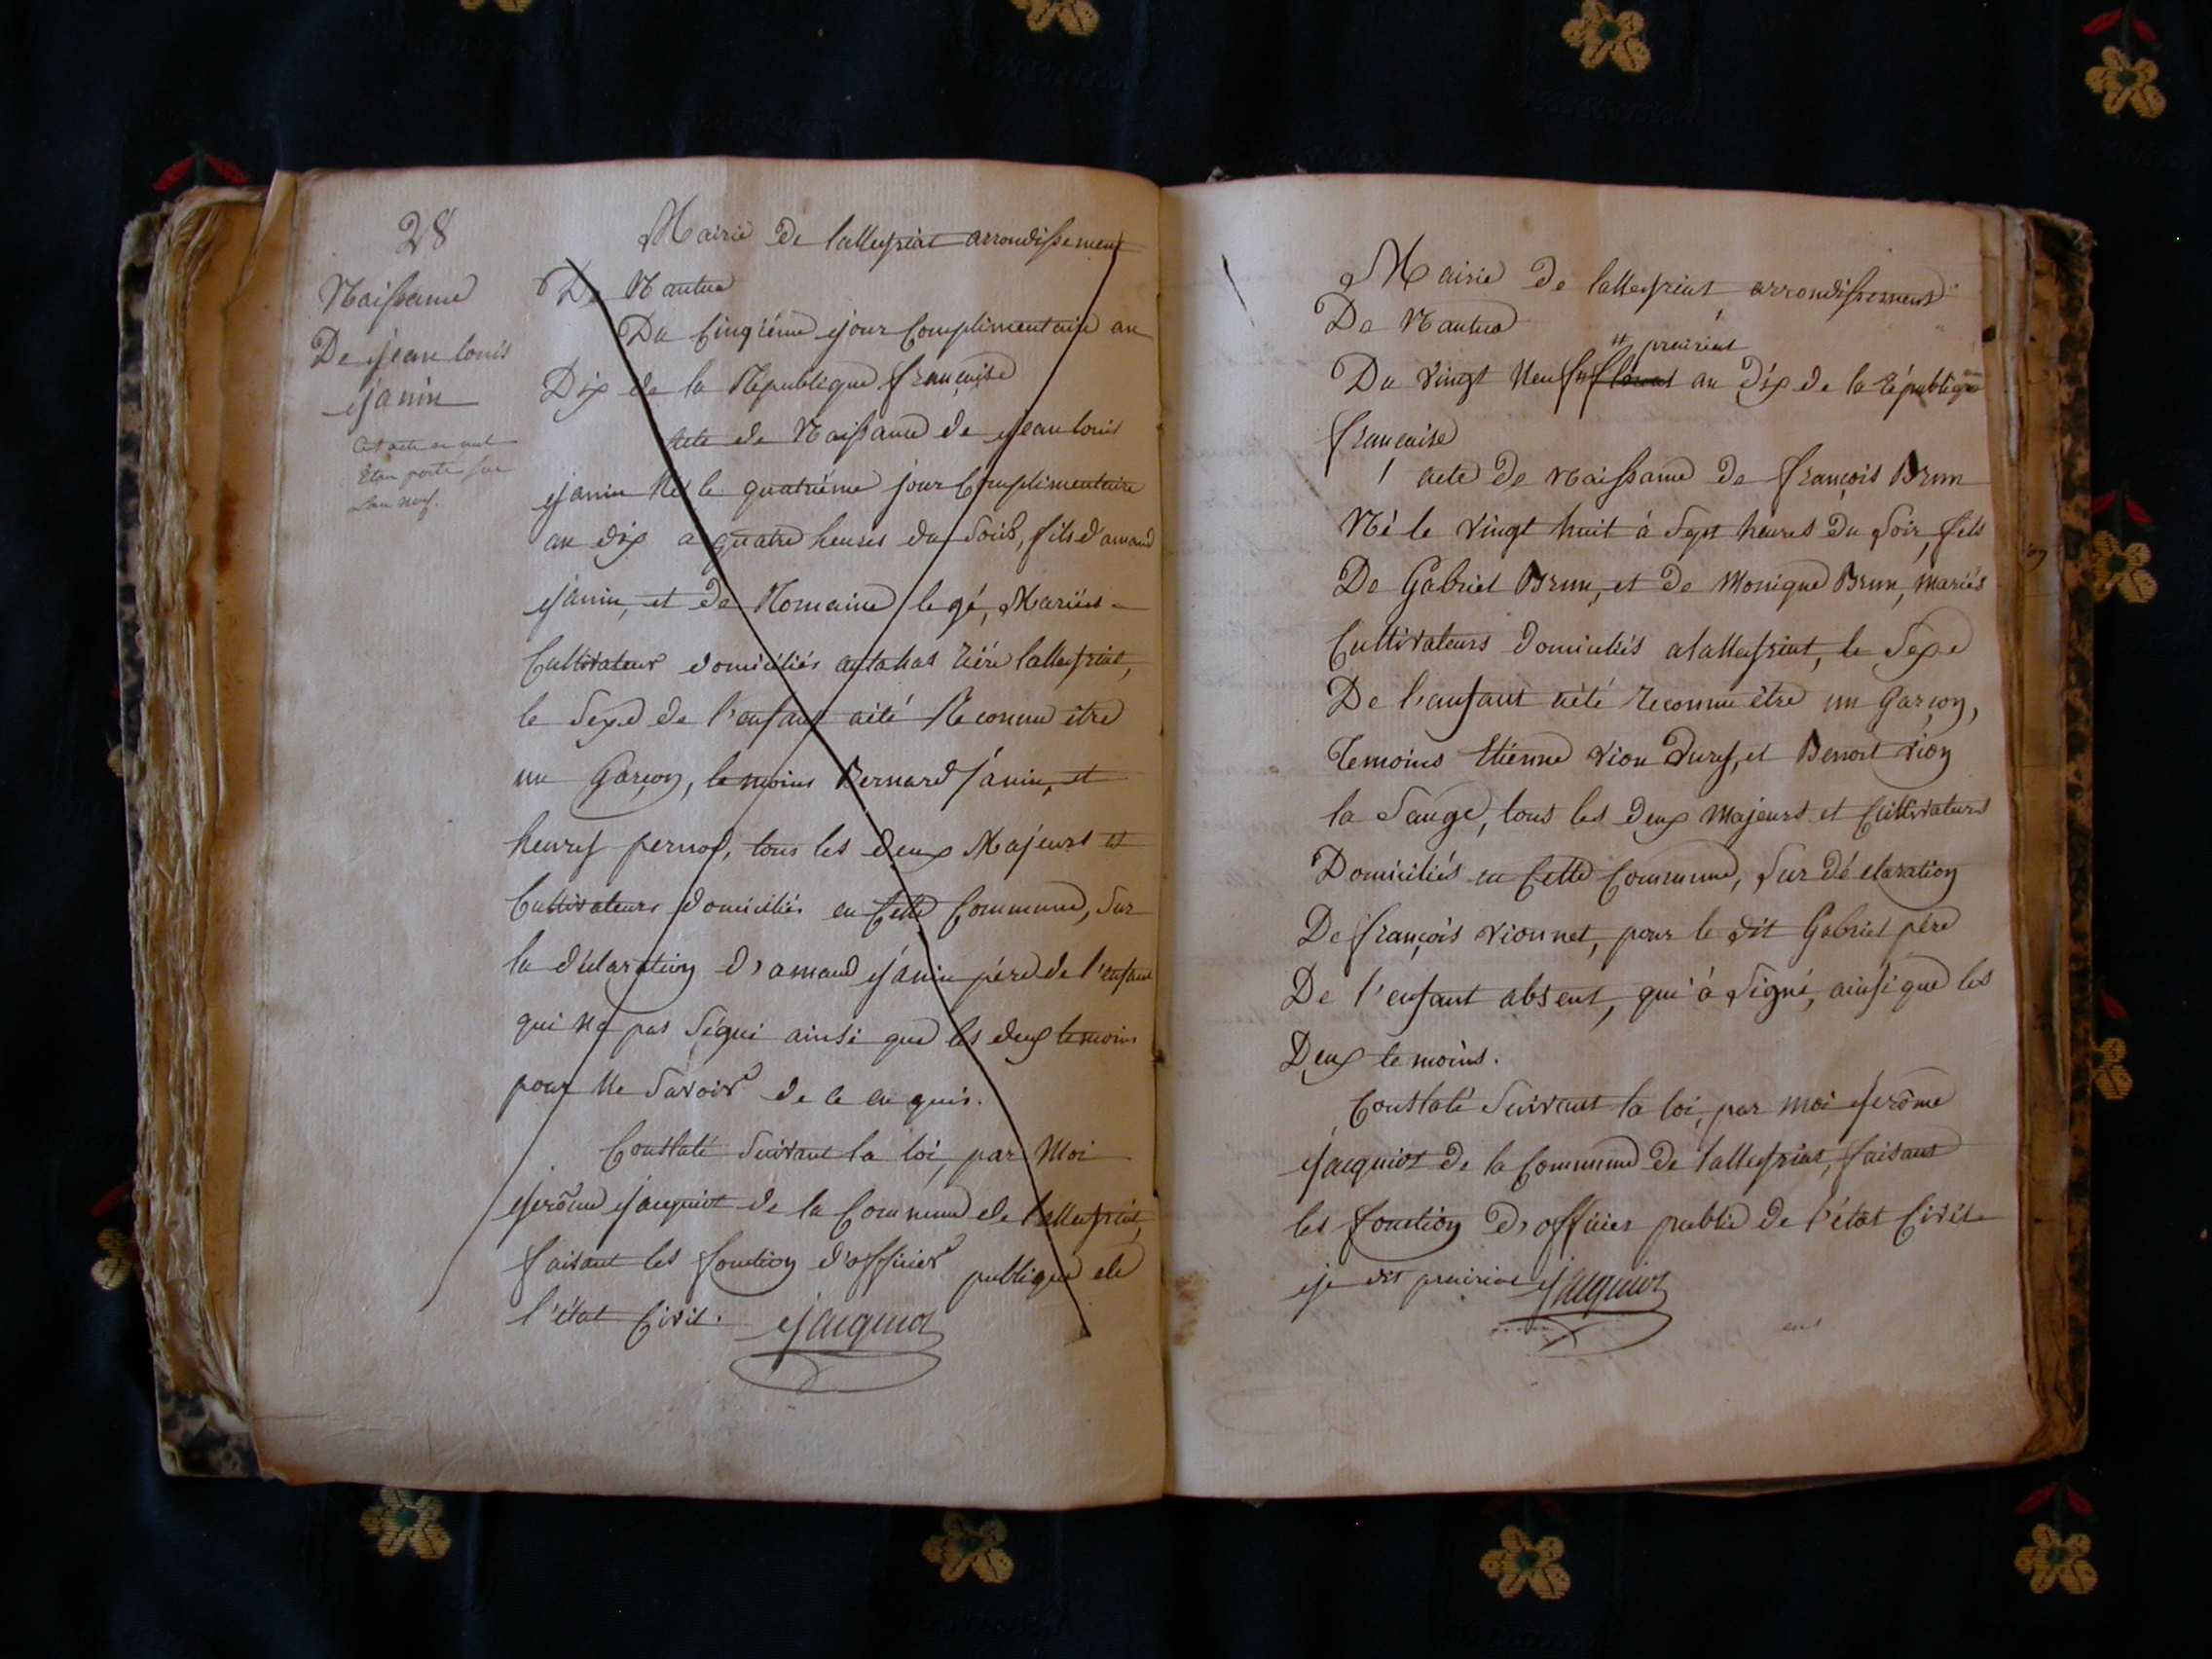 28
Naissance
De jean louis
janin
Cet acte est nul
Etan porté sur
L'an neuf.
Mairie de lalleyriat arrondissement
De Nantua
Du Cinqiéme jour Complimentaire an
Dix de la République francaise
Acte de Naissance de jean louis
janin Né le quatriéme jour Complimentaire
an dix a quatre heures du Soir, fils d'amand
janin, et de Romaine legé, Mariés
Cultivateur domiciliés rière lalleyriat,
le Sexe de l'enfant aété Reconnu être
un Garçon, temoins Bernard janin, et
pernod, tous les deux Majeurs et
Cultivateurs domiciliés en Cette Commune, Sur
la déclaration d'amand janin père de l'enfant
qui Na pas Signé ainsi que les deux temoins
pour Ne Savoir de ce enquis.
Constaté Suivant la loi, par Moi
jerôme jacquiot de la Commune de lalleyriat,
faisant les fonction d'officier publique de
l'état Civil. jacquiot
Mairie de lalleyriat arrondissement
De Nantua
prairial
Du vingt Neuf floreal an dix de la République
francaise
acte de Naissance de françois Brun
Né le vingt huit à Sept heures du Soir, fils
De Gabriel Brun, et de Monique Brun, mariés
Cultivateurs domiciliés alalleyriat, le Sexe
De l'enfant aété reconnu être un Garçon,
temoins Etienne vion Duret, et Benoit vion
la Sauge, tous les deux majeurs et Cultivateurs
Domiciliés en Cette Commune, Sur Déclaration
De françois vionnet, pour le dit Gabriel père
De l'enfant absent, qui à Signé, ainsi que les
Deux temoins.
Constaté Suivant la loi, par moi jerôme
jacquiot de la Commune de lalleyriat, faisant
les fonction d'officier public de l'état Civil
je dit prairial jacquiot